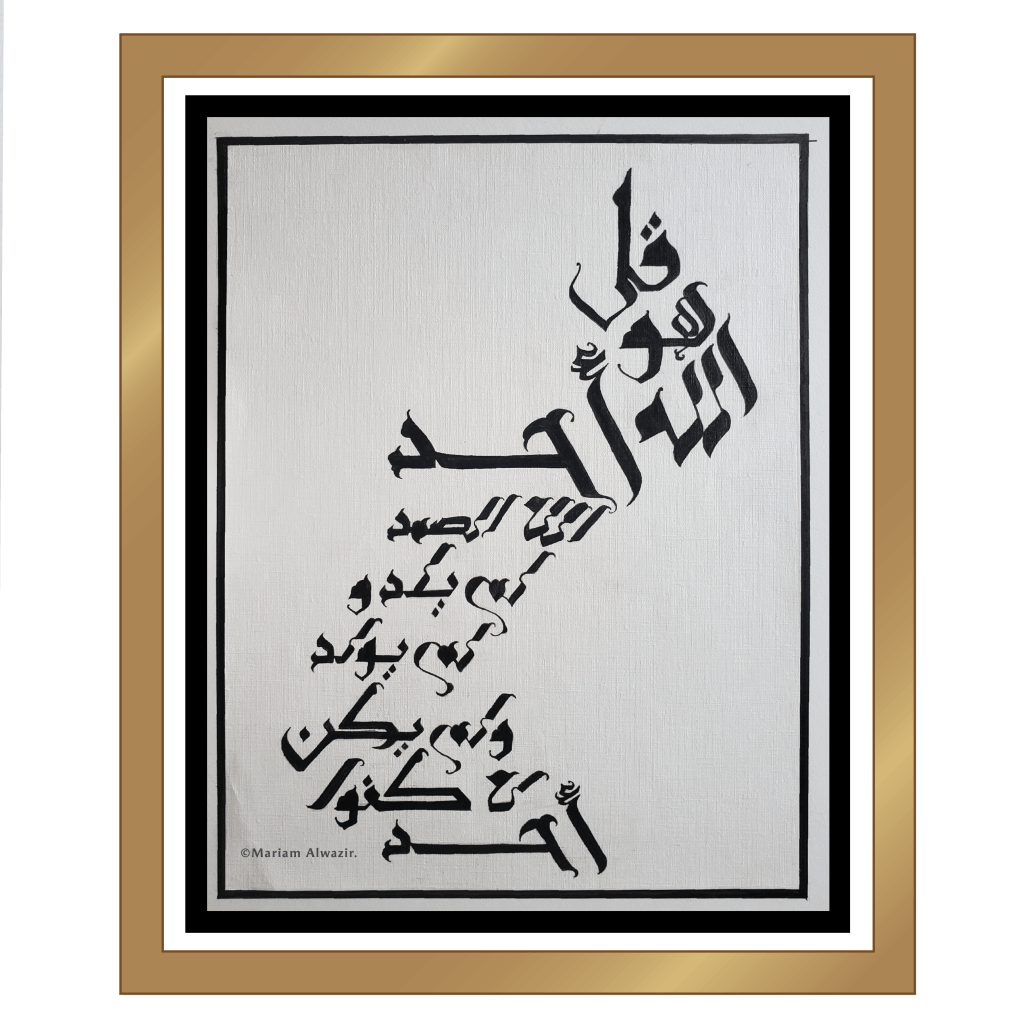 قل
هو
الله أحد
الله الصمد
لم يلد و
لم يولد
ولم يكن
له كفوا
أحد
©Mariam Alwazir.